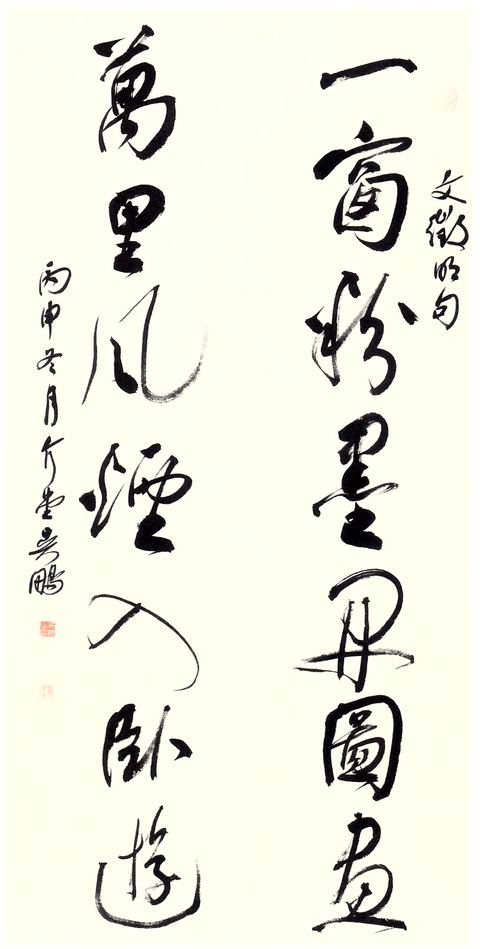 文徵明句
一窗粉墨開圖畫
萬里風煙入臥遊
丙申冬月介堂吳鵬